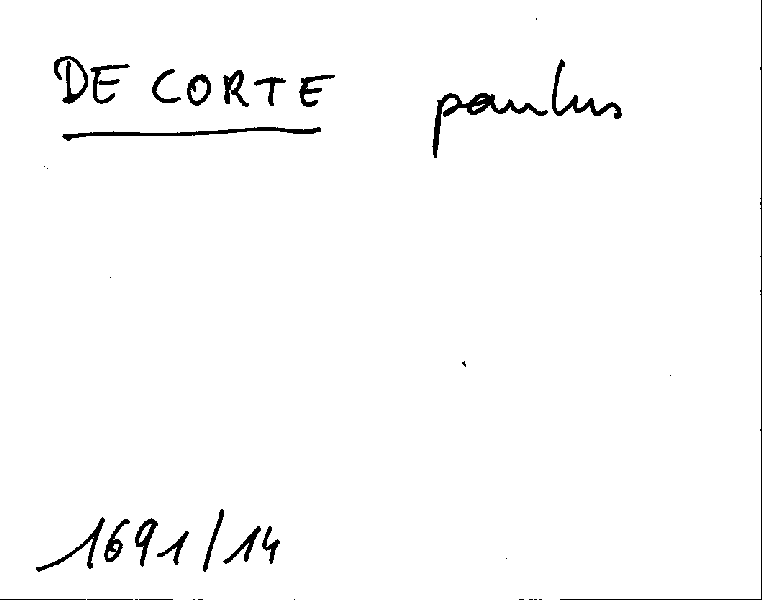 DE CORTE paulus
1691/14